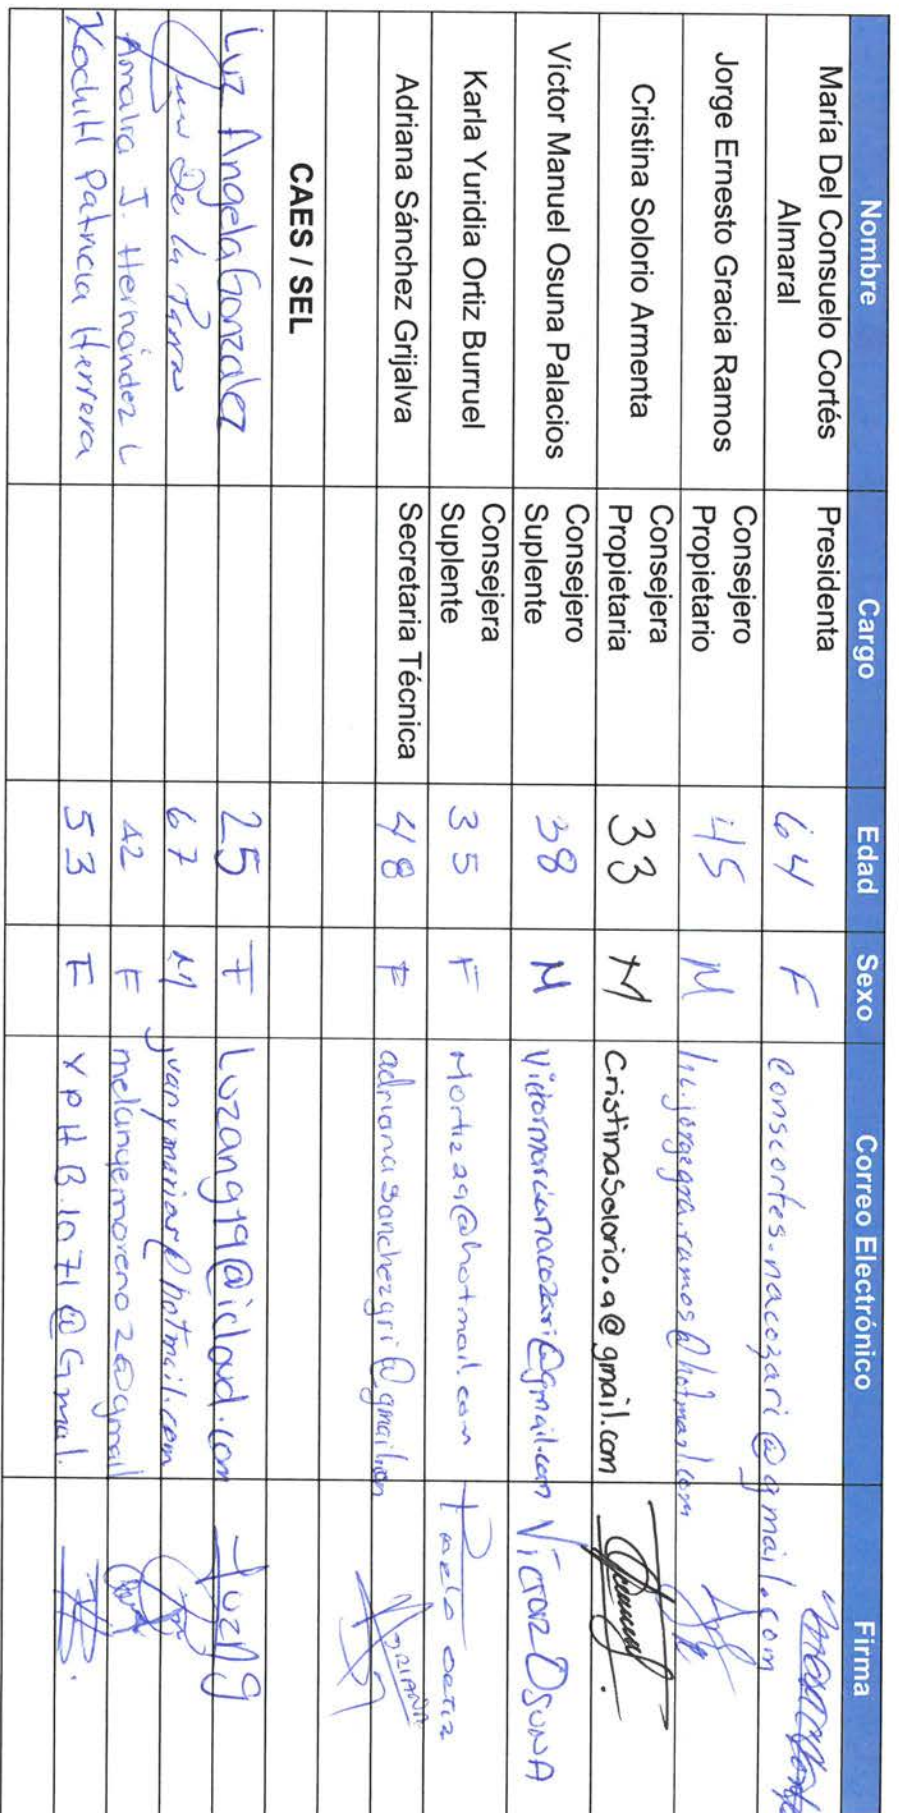 Nombre Cargo Edad Sexo Correo Electrónico Firma
María Del Consuelo Cortés Almaral Presidenta 64 F conscortes.nacozari@gmail.com
Jorge Ernesto Gracia Ramos Consejero Propietario 45 M lic.jorgegra.ramos@hotmail.com
Cristina Solorio Armenta Consejera Propietaria 33 M CristinaSolorio.a@gmail.com
Víctor Manuel Osuna Palacios Consejero Suplente 38 M Victor Osuna
Karla Yuridia Ortiz Burruel Consejera Suplente 35 F Mortiz29@hotmail.com Ortiz
Adriana Sánchez Grijalva Secretaria Técnica 48 F Adriana
CAES / SEL
Luz Angela Gonzalez 25 F Luzang19@iclod.com Luz Ag
De la Parra 67 M juanymariar@hotmail.com
Amalia J. Hernández L 42 F melangemoreno2@gmail
Xochitl Patricia Herrera 53 F XPHB.1071@Gmal.